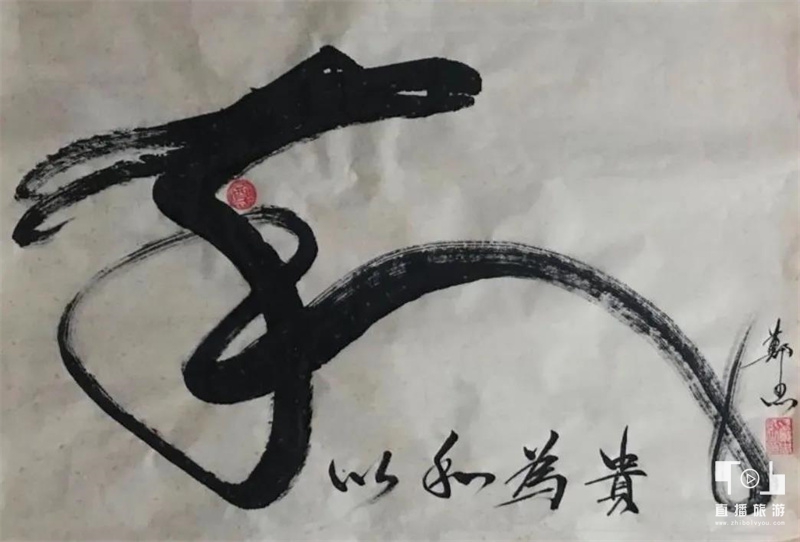 和
以和為貴
鄭
直播旅游
www.zhibolvyou.com